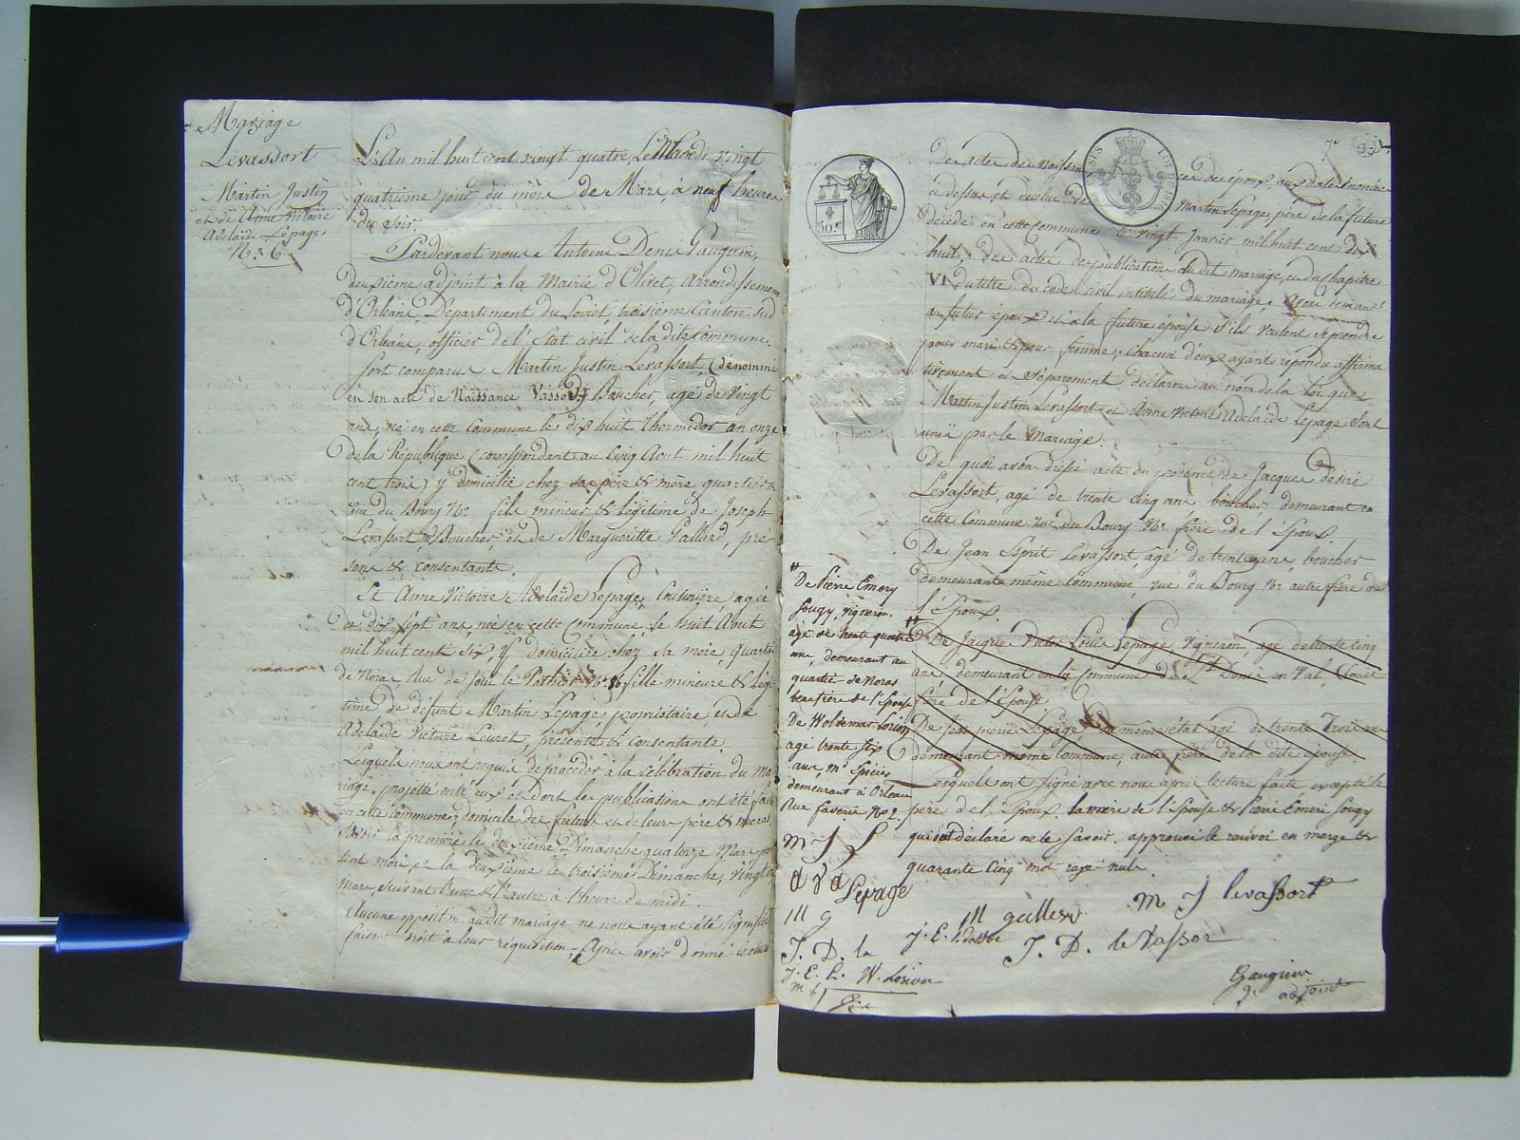 Mariage
Levassort
Martin Justin
et de Anne Victoire
Adelaïde Lepage
N.° 6
L'An mil huit cent vingt quatre, Le Mercredi vingt
quatrième jour du mois de Mars, à neuf heures
du soir.
Pardevant nous Antoine Denis Gaugrion,
deuxième adjoint à la Mairie d'Olivet, Arrondissement
d'Orléans, Département du Loiret, troisième Canton Sud
d'Orléans, officier de l'État civil de la dite Commune.
Sont comparus Martin Justin Levassort, (dénommé
en son acte de Naissance Vassort) Boucher, agé de vingt
ans, né en cette Commune le dix huit Thermidor an onze
de la République (correspondant au cinq Aout mil huit
cent trois) y domicilié chez ses père & mère quartier &
rue du Bourg N.° fils mineur & légitime de Joseph
Levassort, Boucher, et de Margueritte Gallard, pré
sens & consentants.
Et Anne Victoire Adelaïde Lepage, Couturière, agée
de dix sept ans, née en cette Commune le huit Aout
mil huit cent six, y domiciliée chez sa mère, quartier
de Noras Rue de sous le N.° fille mineure & légi
time de défunt Martin Lepage, propriétaire, et de
Adelaïde Victoire Louret, présente & consentante.
Lesquels nous ont requis de procéder à la célébration du Ma
riage projetté entre eux et dont les publications ont été faites
en cette Commune, domicile des futurs et de leurs père & mères
savoir la première le deuxième Dimanche quatorze Mars pré
sent mois, & la deuxième le troisième Dimanche, vingt un
Mars, suivant l'une & l'autre à l'heure de midi.
Aucune opposition audit mariage ne nous ayant été signifiée
faisant droit à leur réquisition, Après avoir donné lecture
7.e
des actes de naissance des époux, aux dates énoncées
ci dessus, et de celui de Martin Lepage, père de la future
décédé en cette Commune le vingt Janvier mil huit cent dix
huit, des actes de publication dudit mariage, et du chapitre
VI du titre du code civil intitulé du mariage, Avons demandé
au futur époux et à la future épouse s'ils veulent se prendre
pour mari & pour femme, chacun d'eux ayant répondu affirma
tivement et séparément déclarons au nom de la loi que
Martin Justin Levassort et Anne Victoire Adelaïde Lepage sont
unis par le Mariage.
De quoi avons dressé acte en présence de Jacques Désiré
Levassort, agé de trente cinq ans boucher demeurant en
cette Commune rue du Bourg N.° frère de l'Époux.
De Jean Esprit Levassort, agé de trente ans, boucher
demeurant même commune, rue du Bourg N.° autre frère de
l'Époux.
De Jacques André Louis Lepage, Vigneron, agé de trente cinq
ans demeurant en la commune de St Denis en Val, (Loiret
frère de l'Épouse
De Lepage, même état agé de trente trois ans
demeurant même commune, autre frère de la dite épouse.
Lesquels ont signé avec nous après lecture faite excepté le
père de l'Époux, la mère de l'épouse & Pierre Emery Sougy
qui ont déclaré ne le savoir. approuvé le renvoi en marge &
quarante cinq mots rayés nuls.
De Pierre Emery
Sougy, vigneron,
agé de trente quatre
ans, demeurant au
quartier de Noras
beau frère de l'Épouse
De Woldemar Lorion
agé trente six
ans, M.d Epicier
demeurant à Orléans
Rue N.° 2.
M J L
A V A Lepage
M g
J. D. la
J. E. L. W. Lorion
M J Levassort
M gallard
J. E. levassor
J. D. levassor
Gaugrion
adjoint